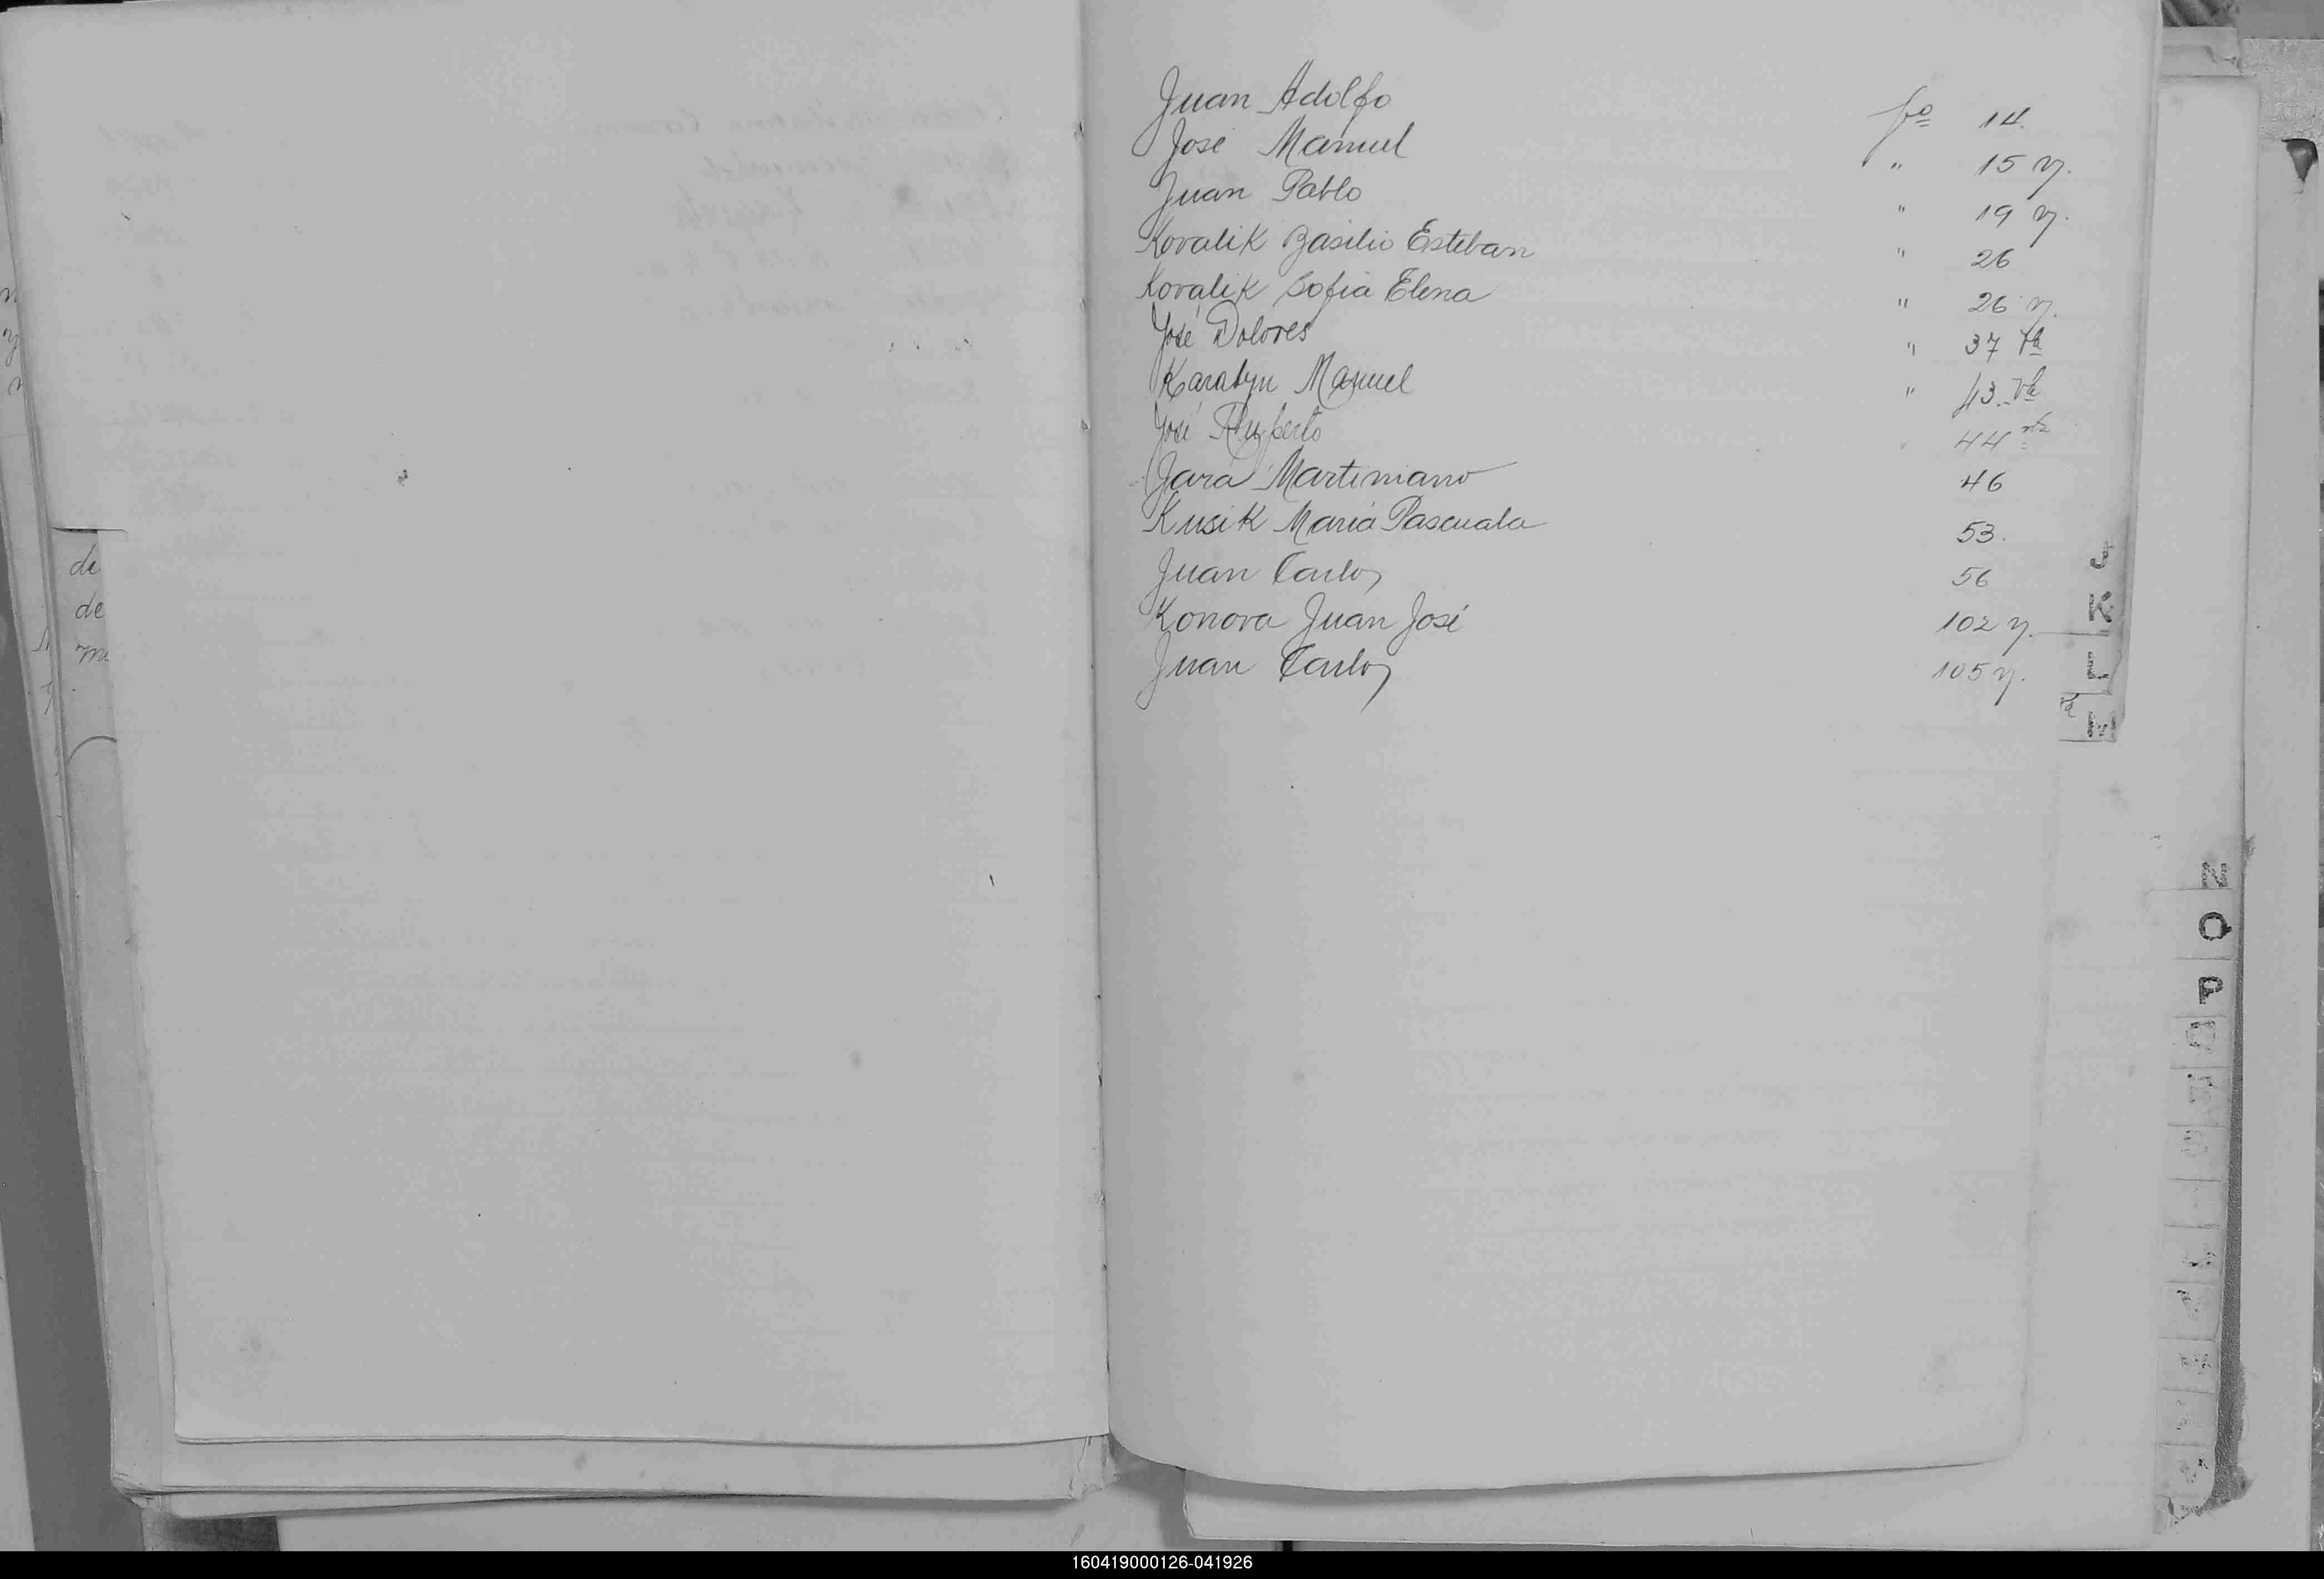 Juan Adolfo fo 14.
José Manuel " 15 v.
Juan Pablo " 19 v.
Kovalik Basilio Esteban " 26
Kovalik Sofia Elena " 26 v.
José Dolores " 37 Va
Karatyn Manuel " 43. Va
José Ruperto " 44 vta
Jara Martiniano 46
Kusik María Pascuala 53.
Juan Carlos 56
Konova Juan José 102 v.
Juan Carlos 105 v.
de
de
J
K
L
N
O
P
160419000126-041926